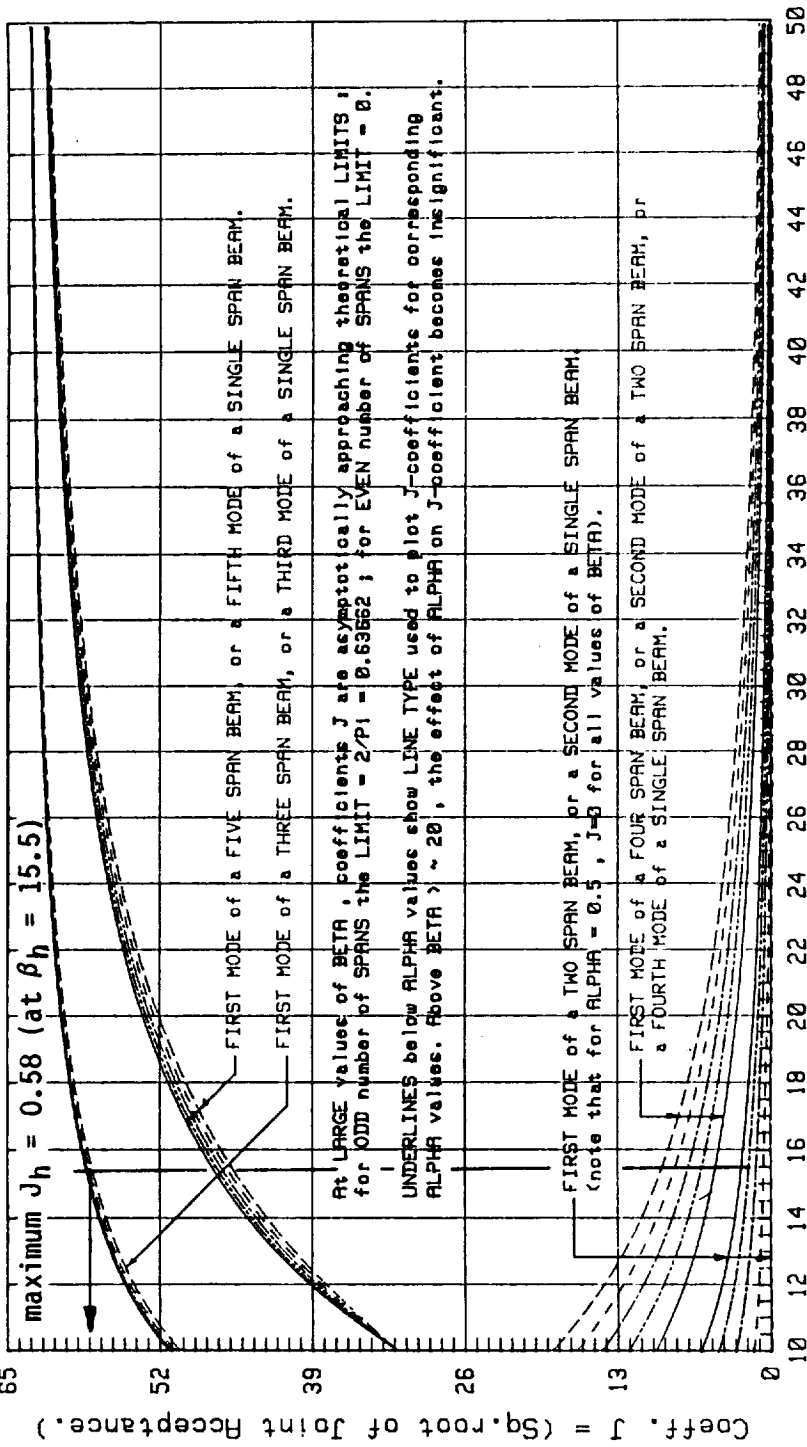 maximum J_h = 0.58 (at β_h = 15.5)
FIRST MODE of a FIVE SPAN BEAM, or a FIFTH MODE of a SINGLE SPAN BEAM.
FIRST MODE of a THREE SPAN BEAM, or a THIRD MODE of a SINGLE SPAN BEAM.
At LARGE values of BETA , coefficients J are asymptotically approaching theoretical LIMITS ;
for ODD number of SPANS the LIMIT = 2/Pi = 0.63662 ; for EVEN number of SPANS the LIMIT = 0.
UNDERLINES below ALPHA values show LINE TYPE used to plot J-coefficients for corresponding
ALPHA values. Above BETA > ~ 20 , the effect of ALPHA on J-coefficient becomes insignificant.
FIRST MODE of a TWO SPAN BEAM, or a SECOND MODE of a SINGLE SPAN BEAM.
(note that for ALPHA = 0.5 , J=0 for all values of BETA).
FIRST MODE of a FOUR SPAN BEAM, or a SECOND MODE of a TWO SPAN BEAM, or
a FOURTH MODE of a SINGLE SPAN BEAM.
Coeff. J = (Sq.root of Joint Acceptance.)
65
52
39
26
13
0
10 12 14 16 18 20 22 24 26 28 30 32 34 36 38 40 42 44 46 48 50